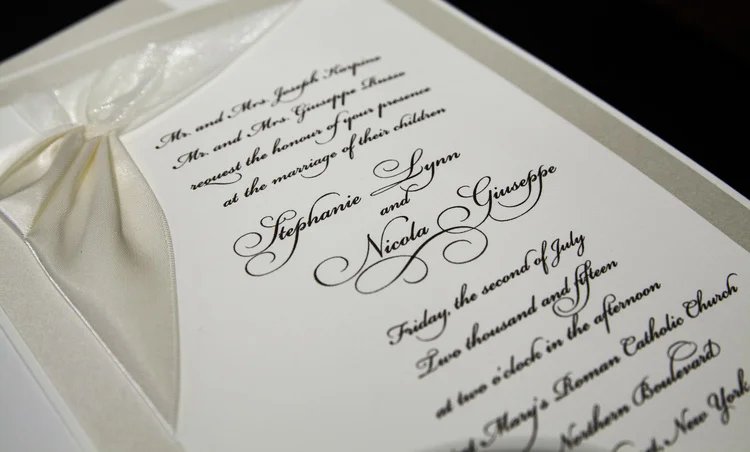 Mr. and Mrs. Joseph
Mr. and Mrs. Giuseppe Russo
request the honour of your presence
at the marriage of their children
Stephanie Lynn
and
Nicola Giuseppe
Friday, the second of July
Two thousand and fifteen
at two o'clock in the afternoon
Mary's Roman Catholic Church
Northern Boulevard
New York